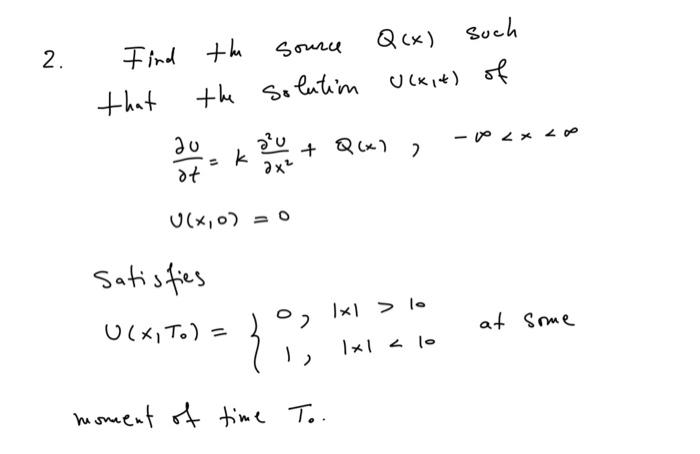 2. Find the source Q(x) such
that the solution U(x,t) of
∂U/∂t = k ∂²U/∂x² + Q(x) , -∞ < x < ∞
U(x,0) = 0
Satisfies
U(x,T₀) = { 0, |x| > 10
1, |x| < 10 at some
moment of time T₀.